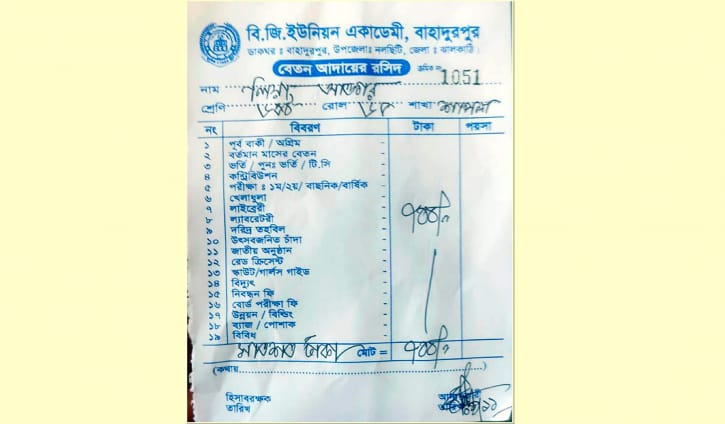 বি.জি.ইউনিয়ন একাডেমী, বাহাদুরপুর
ডাকঘর : বাহাদুরপুর, উপজেলা: নলছিটি, জেলা : ঝালকাঠি।
বেতন আদায়ের রসিদ ক্রমিক নং 1051
নাম আক্তার
শ্রেণি ৬ষ্ঠ রোল শাখা শাপলা
নং বিবরণ টাকা পয়সা
১ পূর্ব বাকী / অগ্রিম
২ বর্তমান মাসের বেতন
৩ ভর্তি / পুনঃ ভর্তি / টি.সি
৪ কন্ট্রিবিউশন
৫ পরীক্ষা : ১ম/২য়/ বাছনিক/বার্ষিক
৬ খেলাধুলা
৭ লাইব্রেরী
৮ ল্যাবরেটরী ৭০০/
৯ দরিদ্র তহবিল
১০ উৎসবজনিত চাঁদা
১১ জাতীয় অনুষ্ঠান
১২ রেড ক্রিসেন্ট
১৩ স্কাউট/গার্লস গাইড
১৪ বিদ্যুৎ
১৫ নিবন্ধন ফি
১৬ বোর্ড পরীক্ষা ফি
১৭ উন্নয়ন / বিল্ডিং
১৮ ব্যাজ / পোশাক
১৯ বিবিধ
সাতশত টাকা মোট = ৭০০/
(কথায়)
হিসাবরক্ষক
তারিখ